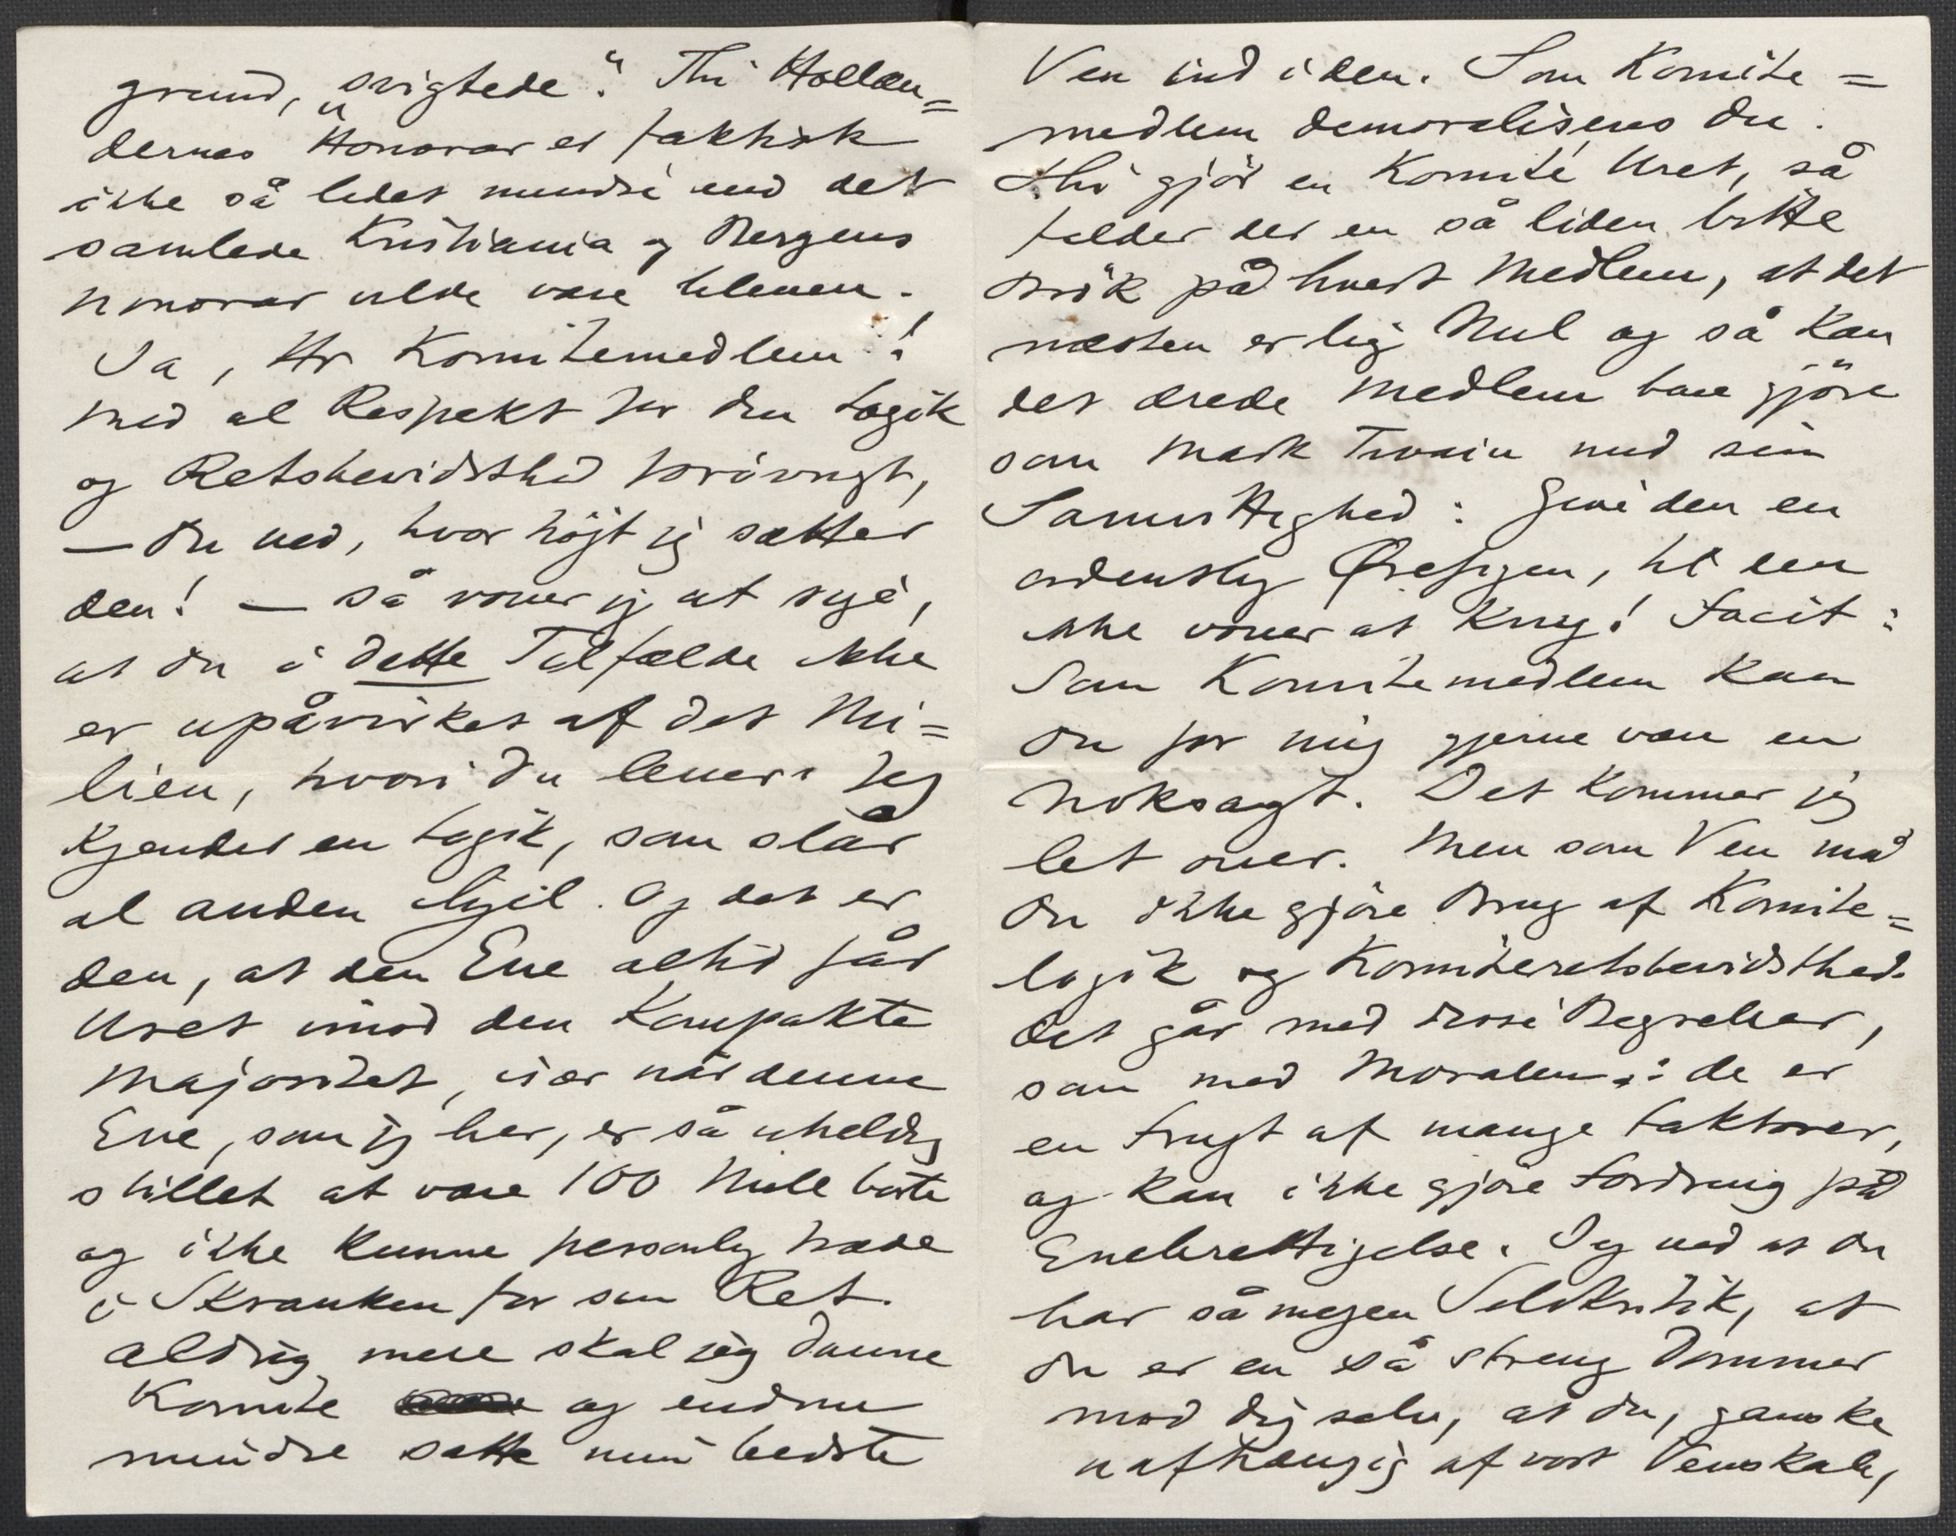 grund, „svigtede“. Thi Hollæn=
dernes Honorar er faktisk
ikke så lidet mindre end det
samlede Kristiania og Bergens
honorar vilde være bleven.
Ja, Hr Komitemedlem!
Med al Respekt for din Logik
og Retsbevidsthed forövrigt,
— du ved, hvor höjt jeg sætter
den! — så vover jeg at sige,
at du i dette Tilfælde ikke
er upåvirket af det Mi=
lieu, hvori du lever. Jeg
kjender en Logik, som slår
al anden ihjel. Og det er
den, at den Ene altid får
Uret imod den kompakte
Majoritet, især når denne
Ene, som jeg her, er så uheldig
stillet at være 100 Mile borte
og ikke kunne personlig træde
i Skranken for sin Ret.
Aldrig mere skal jeg danne
Komite og endnu
mindre sætte min bedste
Ven ind i den. Som Komite=
medlem demoraliseres du.
Thi gjör en Komité Uret, så
falder der en så liden bitte
Brök på hvert Medlem, at det
næsten er lig Nul og så kan
det ærede Medlem bare gjöre
som Mark Twain med sin
Samvittighed: Give den en
ordentlig Ørefigen, til den
ikke vover at kny! Facit:
Som Komitemedlem kan
du for mig gjerne være en
noksagt. Det kommer jeg
let over. Men som Ven må
du ikke gjöre Brug af Komite=
logik og Komiteretsbevidsthed.
Det går med disse Begreber,
som med Moralen: de er
en Frugt af mange Faktorer,
og kan ikke gjöre Fordring på
Eneberettigelse. Jeg ved at du
har så megen Selvkritik, at
du er en så streng Dommer
mod dig selv, at du, ganske
uafhængig af vort Venskab,